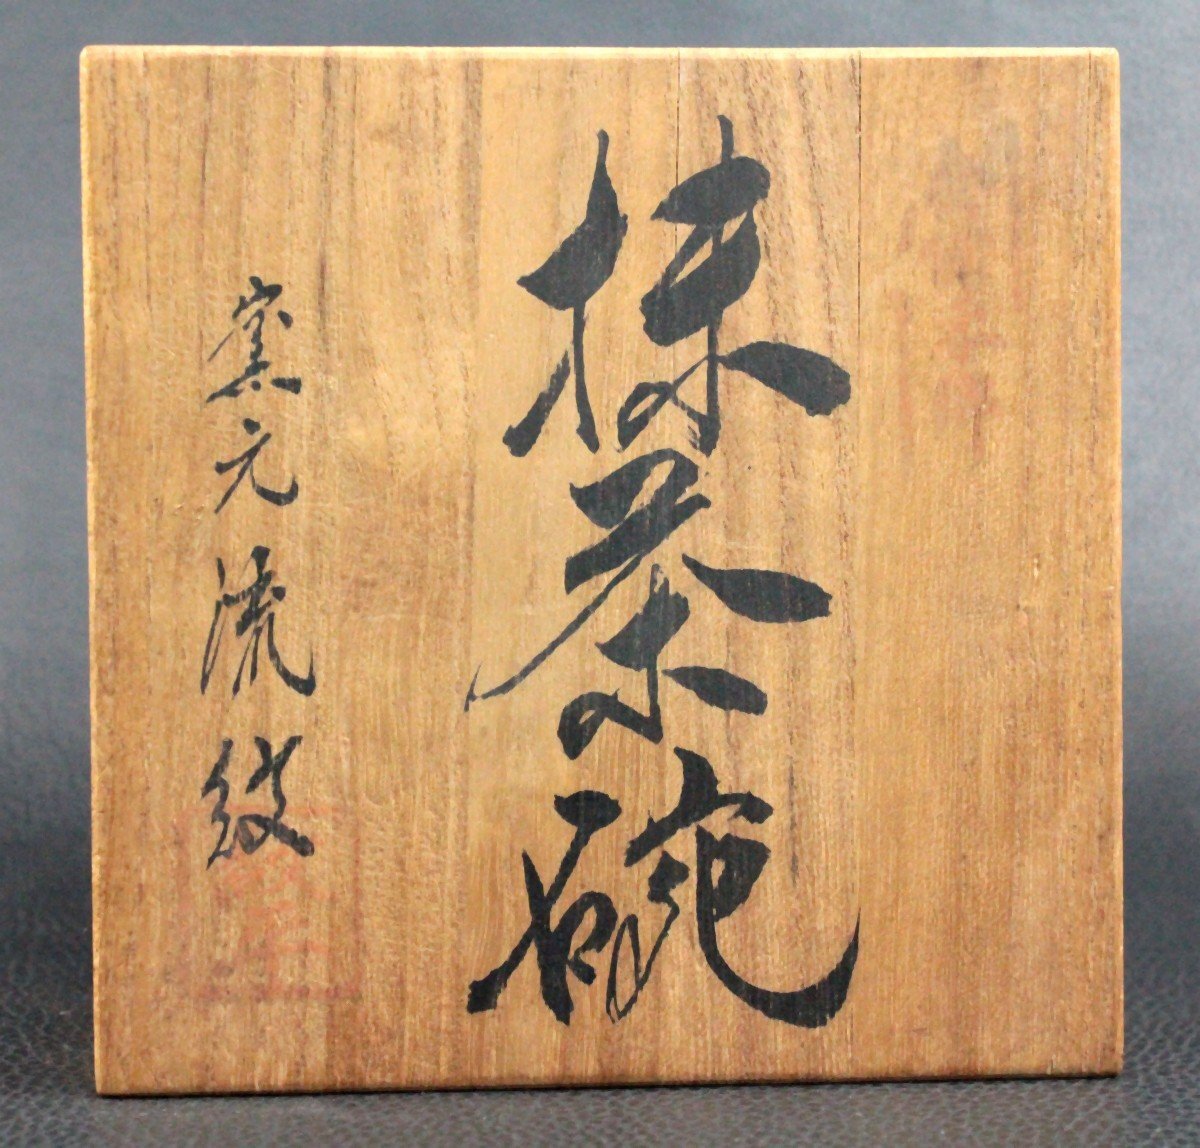 抹茶碗
窯元 流紋